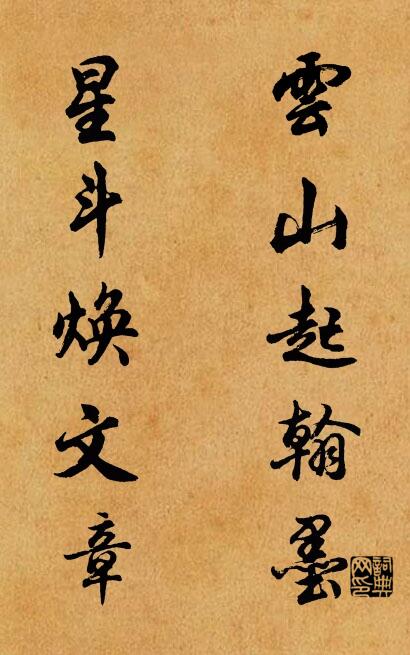 雲山起翰墨
星斗焕文章
詞典网印